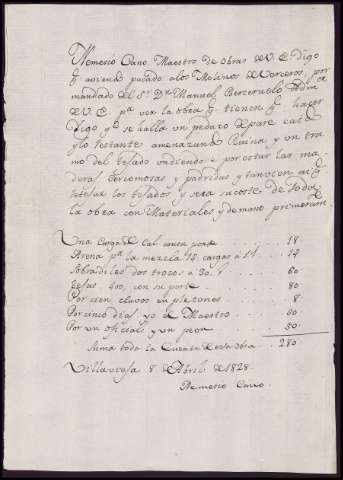 Nemesio Cano Maestro de obras de V. E. digo
q. aviendo pasado a los Molinos de Torreros, por
mandado del Sr. Dn. Manuel Berceruelo Admor
de V. E. pa. ver la obra q. tienen q. hacer
Digo q. se halla un pedazo de pared
y lo restante amenazando Ruina y un tra
mo del tejado undiendose por estar las ma
deras carcomosas y podridas y tanvien
los tejados y sera su coste de toda
la obra con Materiales y de mano
Una carga de cal con su porte 18
Arena pa. la mezcla 14 cargas a 1 r. 14
Abradiles dos trozos a 30 r. 60
tejas 400, con su porte 80
Por cien clavos 8
Por cinco dias yo el Maestro 50
Por un oficial y un peon 50
Suma toda la Cuenta de esta obra 280
Villavieja 8 de Abril de 1828
Nemesio Cano